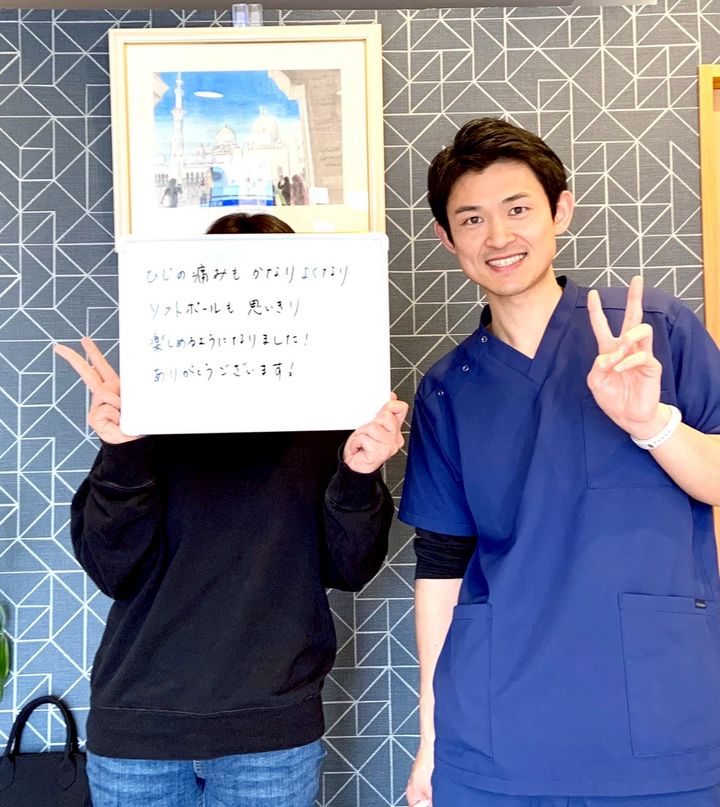 ひじの痛みも かなりよくなり
ソフトボールも 思いきり
楽しめるようになりました!
ありがとうございます!